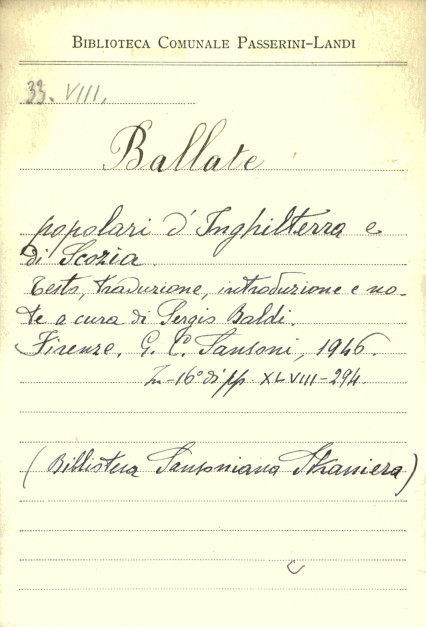 BIBLIOTECA COMUNALE PASSERINI-LANDI
33. VIII.
Ballate
popolari d'Inghilterra e
di Scozia.
Testo, traduzione, introduzione e no-
te a cura di Sergio Baldi.
Firenze, G. C. Sansoni, 1946.
In-16° di pp. XLVIII-294.
(Biblioteca Sansoniana Straniera)